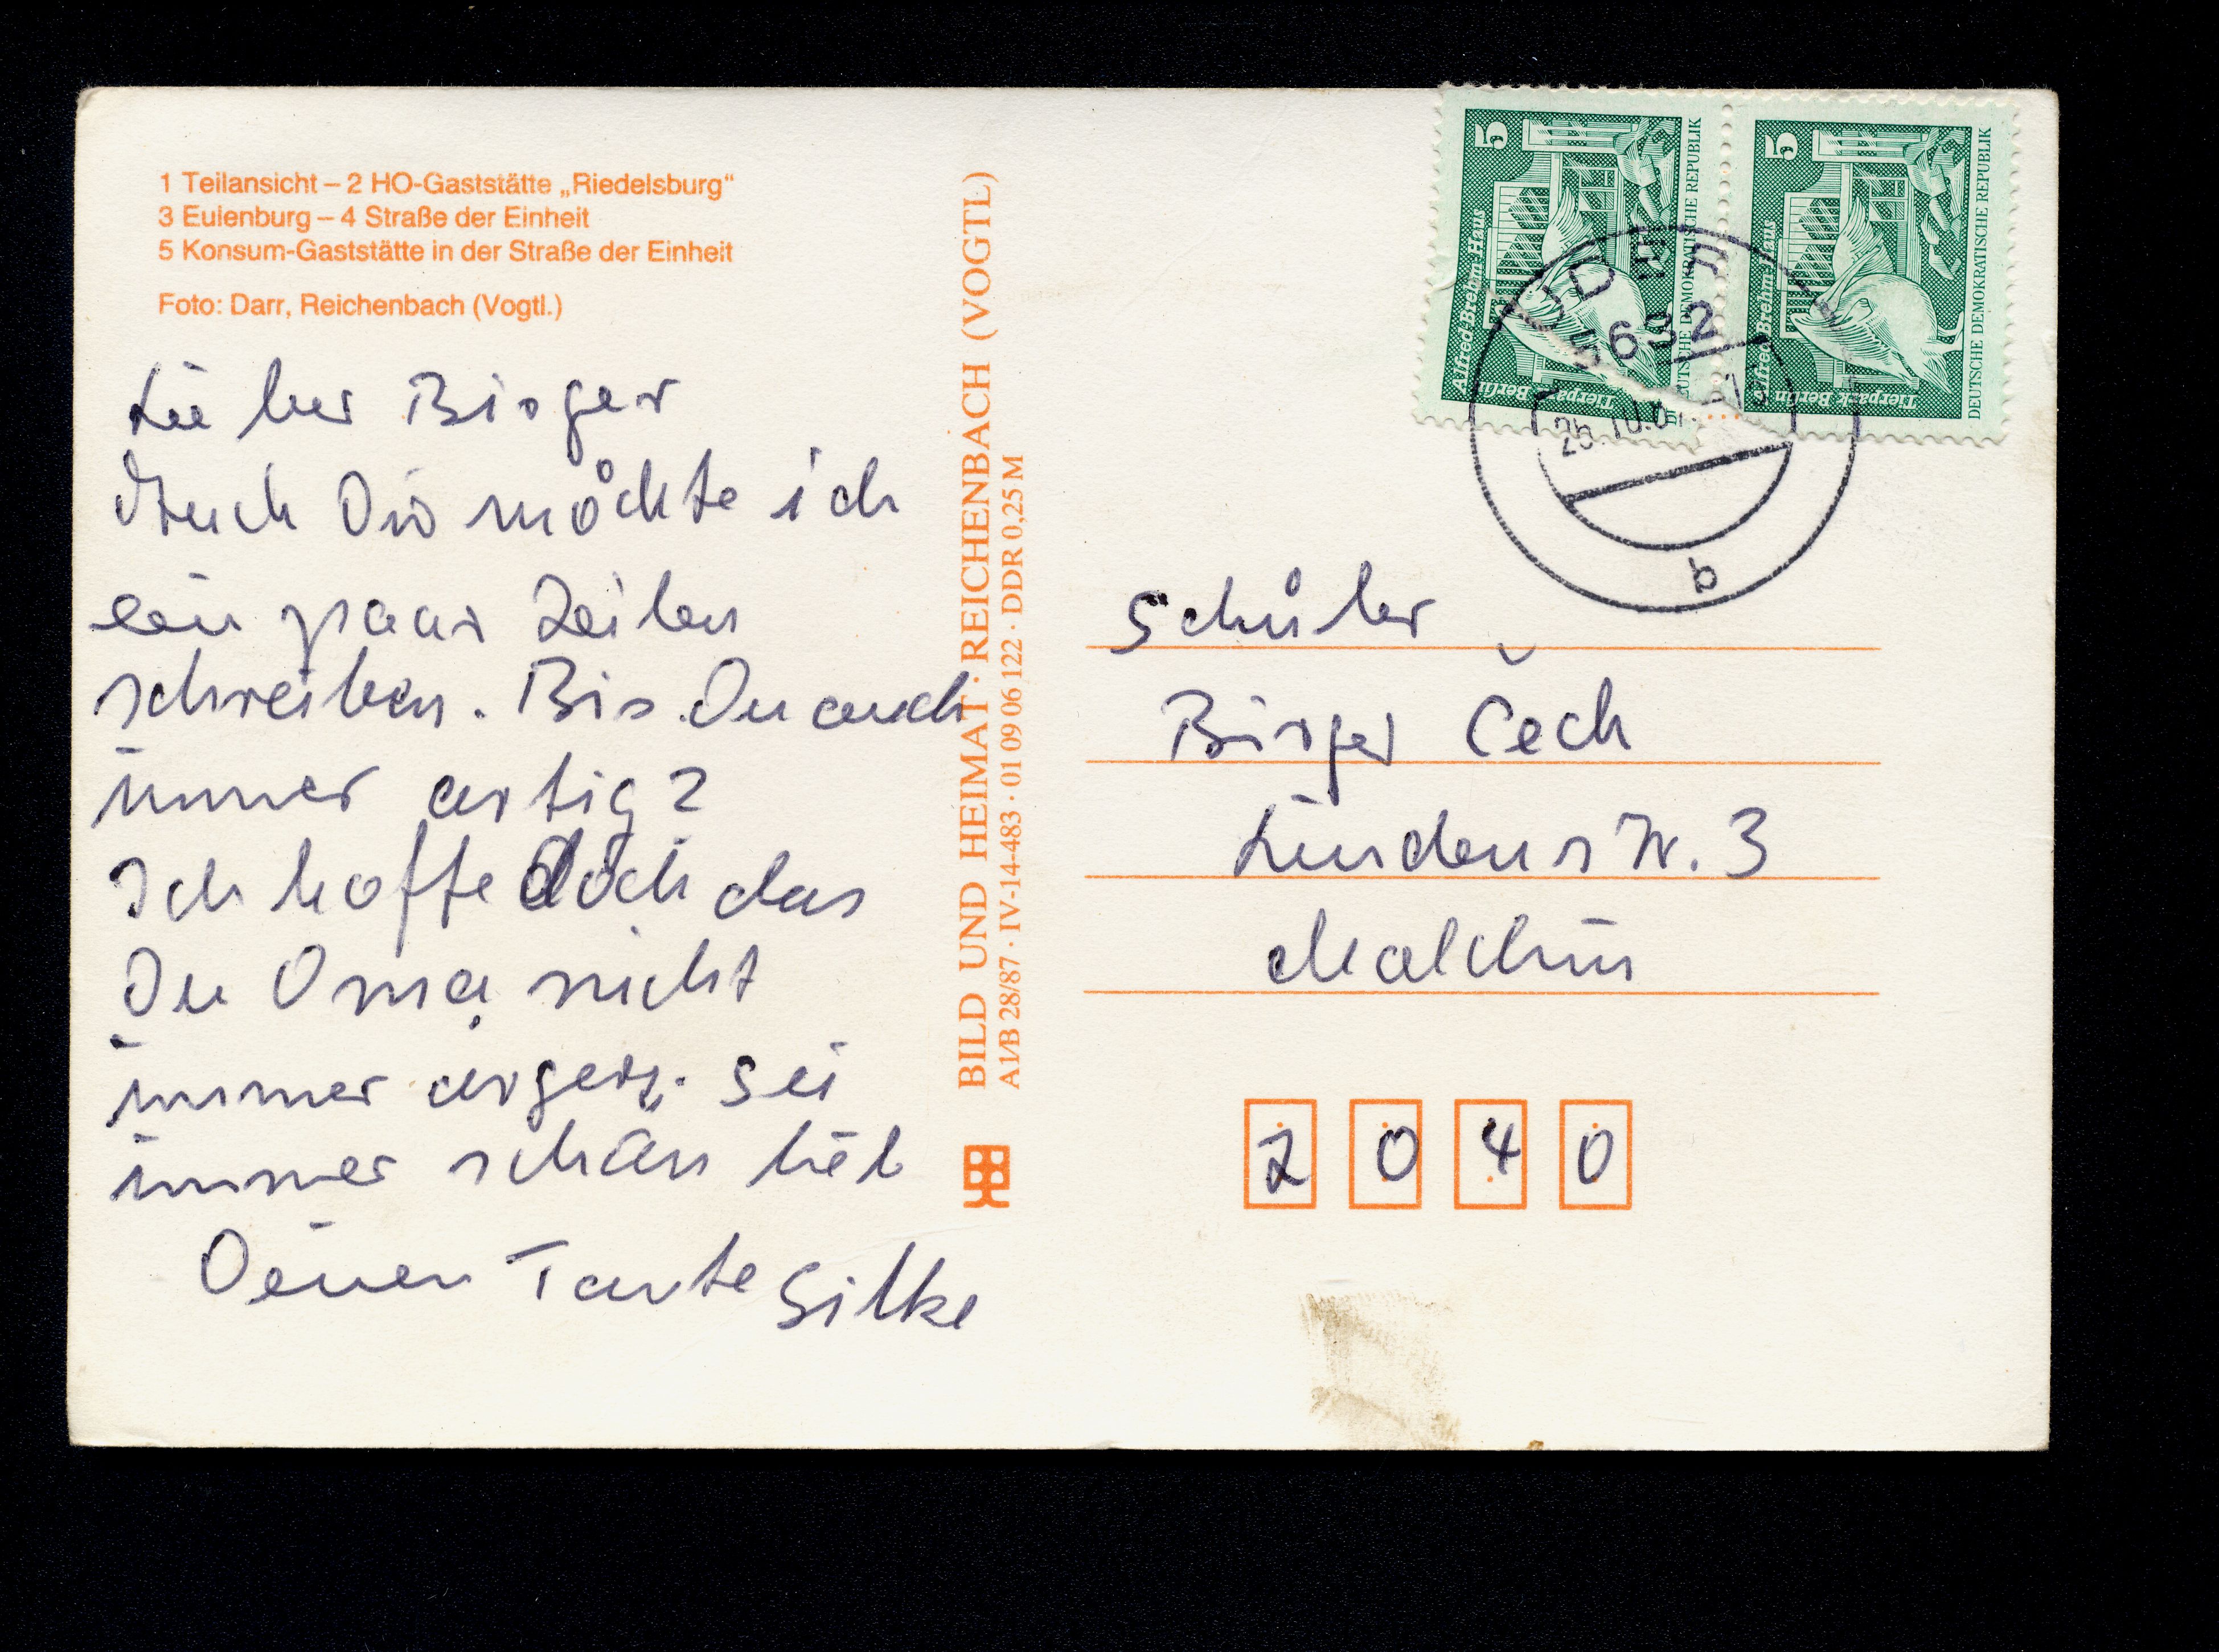 1 Teilansicht – 2 HO-Gaststätte „Riedelsburg“
3 Eulenburg – 4 Straße der Einheit
5 Konsum-Gaststätte in der Straße der Einheit
Foto: Darr, Reichenbach (Vogtl.)
Lieber Birger
Auch Dir möchte ich
ein paar Zeilen
schreiben. Bis Du auch
immer artig?
Ich hoffe doch das
Du Oma nicht
immer argers. Sei
immer schön lieb
Deinen Tante Silke
BILD UND HEIMAT · REICHENBACH (VOGTL)
A1/B 28/87 · IV-14-483 · 01 09 06 122 · DDR 0,25 M
5
Alfred-Brehm-Haus
Tierpark Berlin
DEUTSCHE DEMOKRATISCHE REPUBLIK
5
Alfred-Brehm-Haus
Tierpark Berlin
DEUTSCHE DEMOKRATISCHE REPUBLIK
5632
b
Schüler
Birger Čech
Lindenstr. 3
Malchin
2040